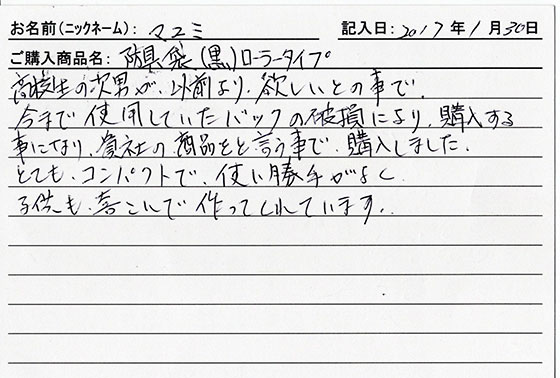 お名前(ニックネーム): マユミ 記入日: 2017年1月30日
ご購入商品名: 防具袋(黒)ローラータイプ
高校生の次男が、以前より、欲しいとの事で、
今まで使用していたバックの破損により、購入する
事になり、貴社の商品をと言う事で、購入しました。
とても、コンパクトで、使い勝手がよく
子供も、喜こんで作ってくれています。